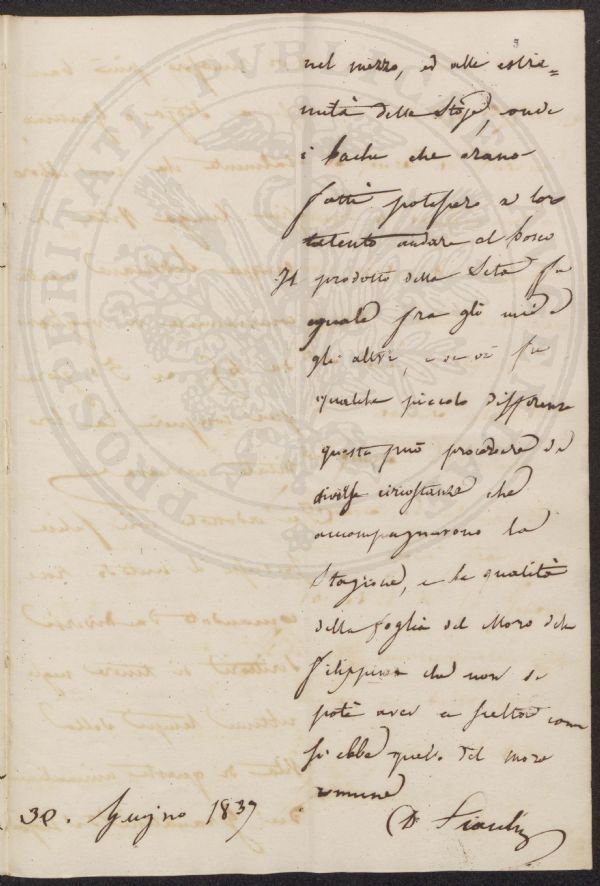 3
nel mezzo, ed alle estre=
mità delle Stoje, onde
i bachi che erano
fatti potessero a loro
talento andare al bosco
Il prodotto della Seta fu
eguale fra gli uni e
gli altri, e se vi fu
qualche piccola differenza
questa può procedere da
diverse circostanze che
accompagnarono la
Stagione, e la qualità
della foglia del Moro delle
Filippine che non si
potè aver a scelta come
si ebbe quella del moro
comune
30. Giugno 1837
Dr
PROSPERITATI PUBLICAE